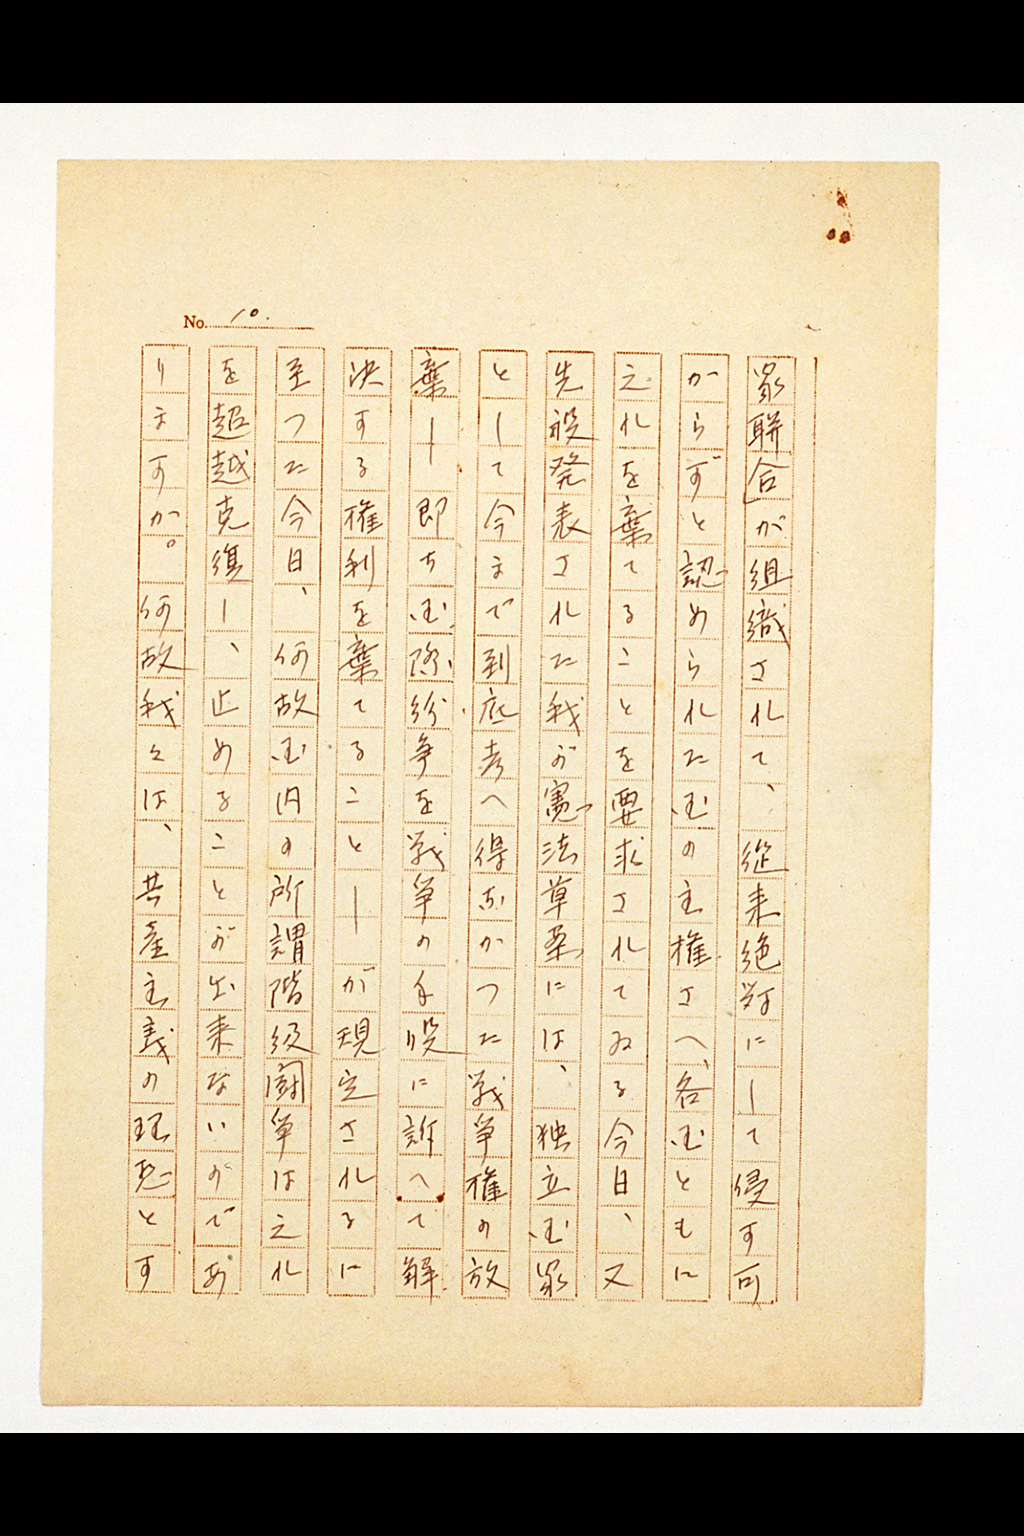 No. 10.
家聯合が組織されて、従来絶対にして侵す可
からずと認められた国の主権さへ、各国ともに
之れを棄てることを要求されてゐる今日、又
先般発表された我が憲法草案には、独立国家
として今まで到底考へ得なかつた戦争権の放
棄―即ち国際紛争を戦争の手段に訴へて解
決する権利を棄てること―が規定されるに
至つた今日、何故国内の所謂階級闘争は之れ
を超越克復し、止めることが出来ないのであ
りますか。何故我々は、共産主義の理想とす